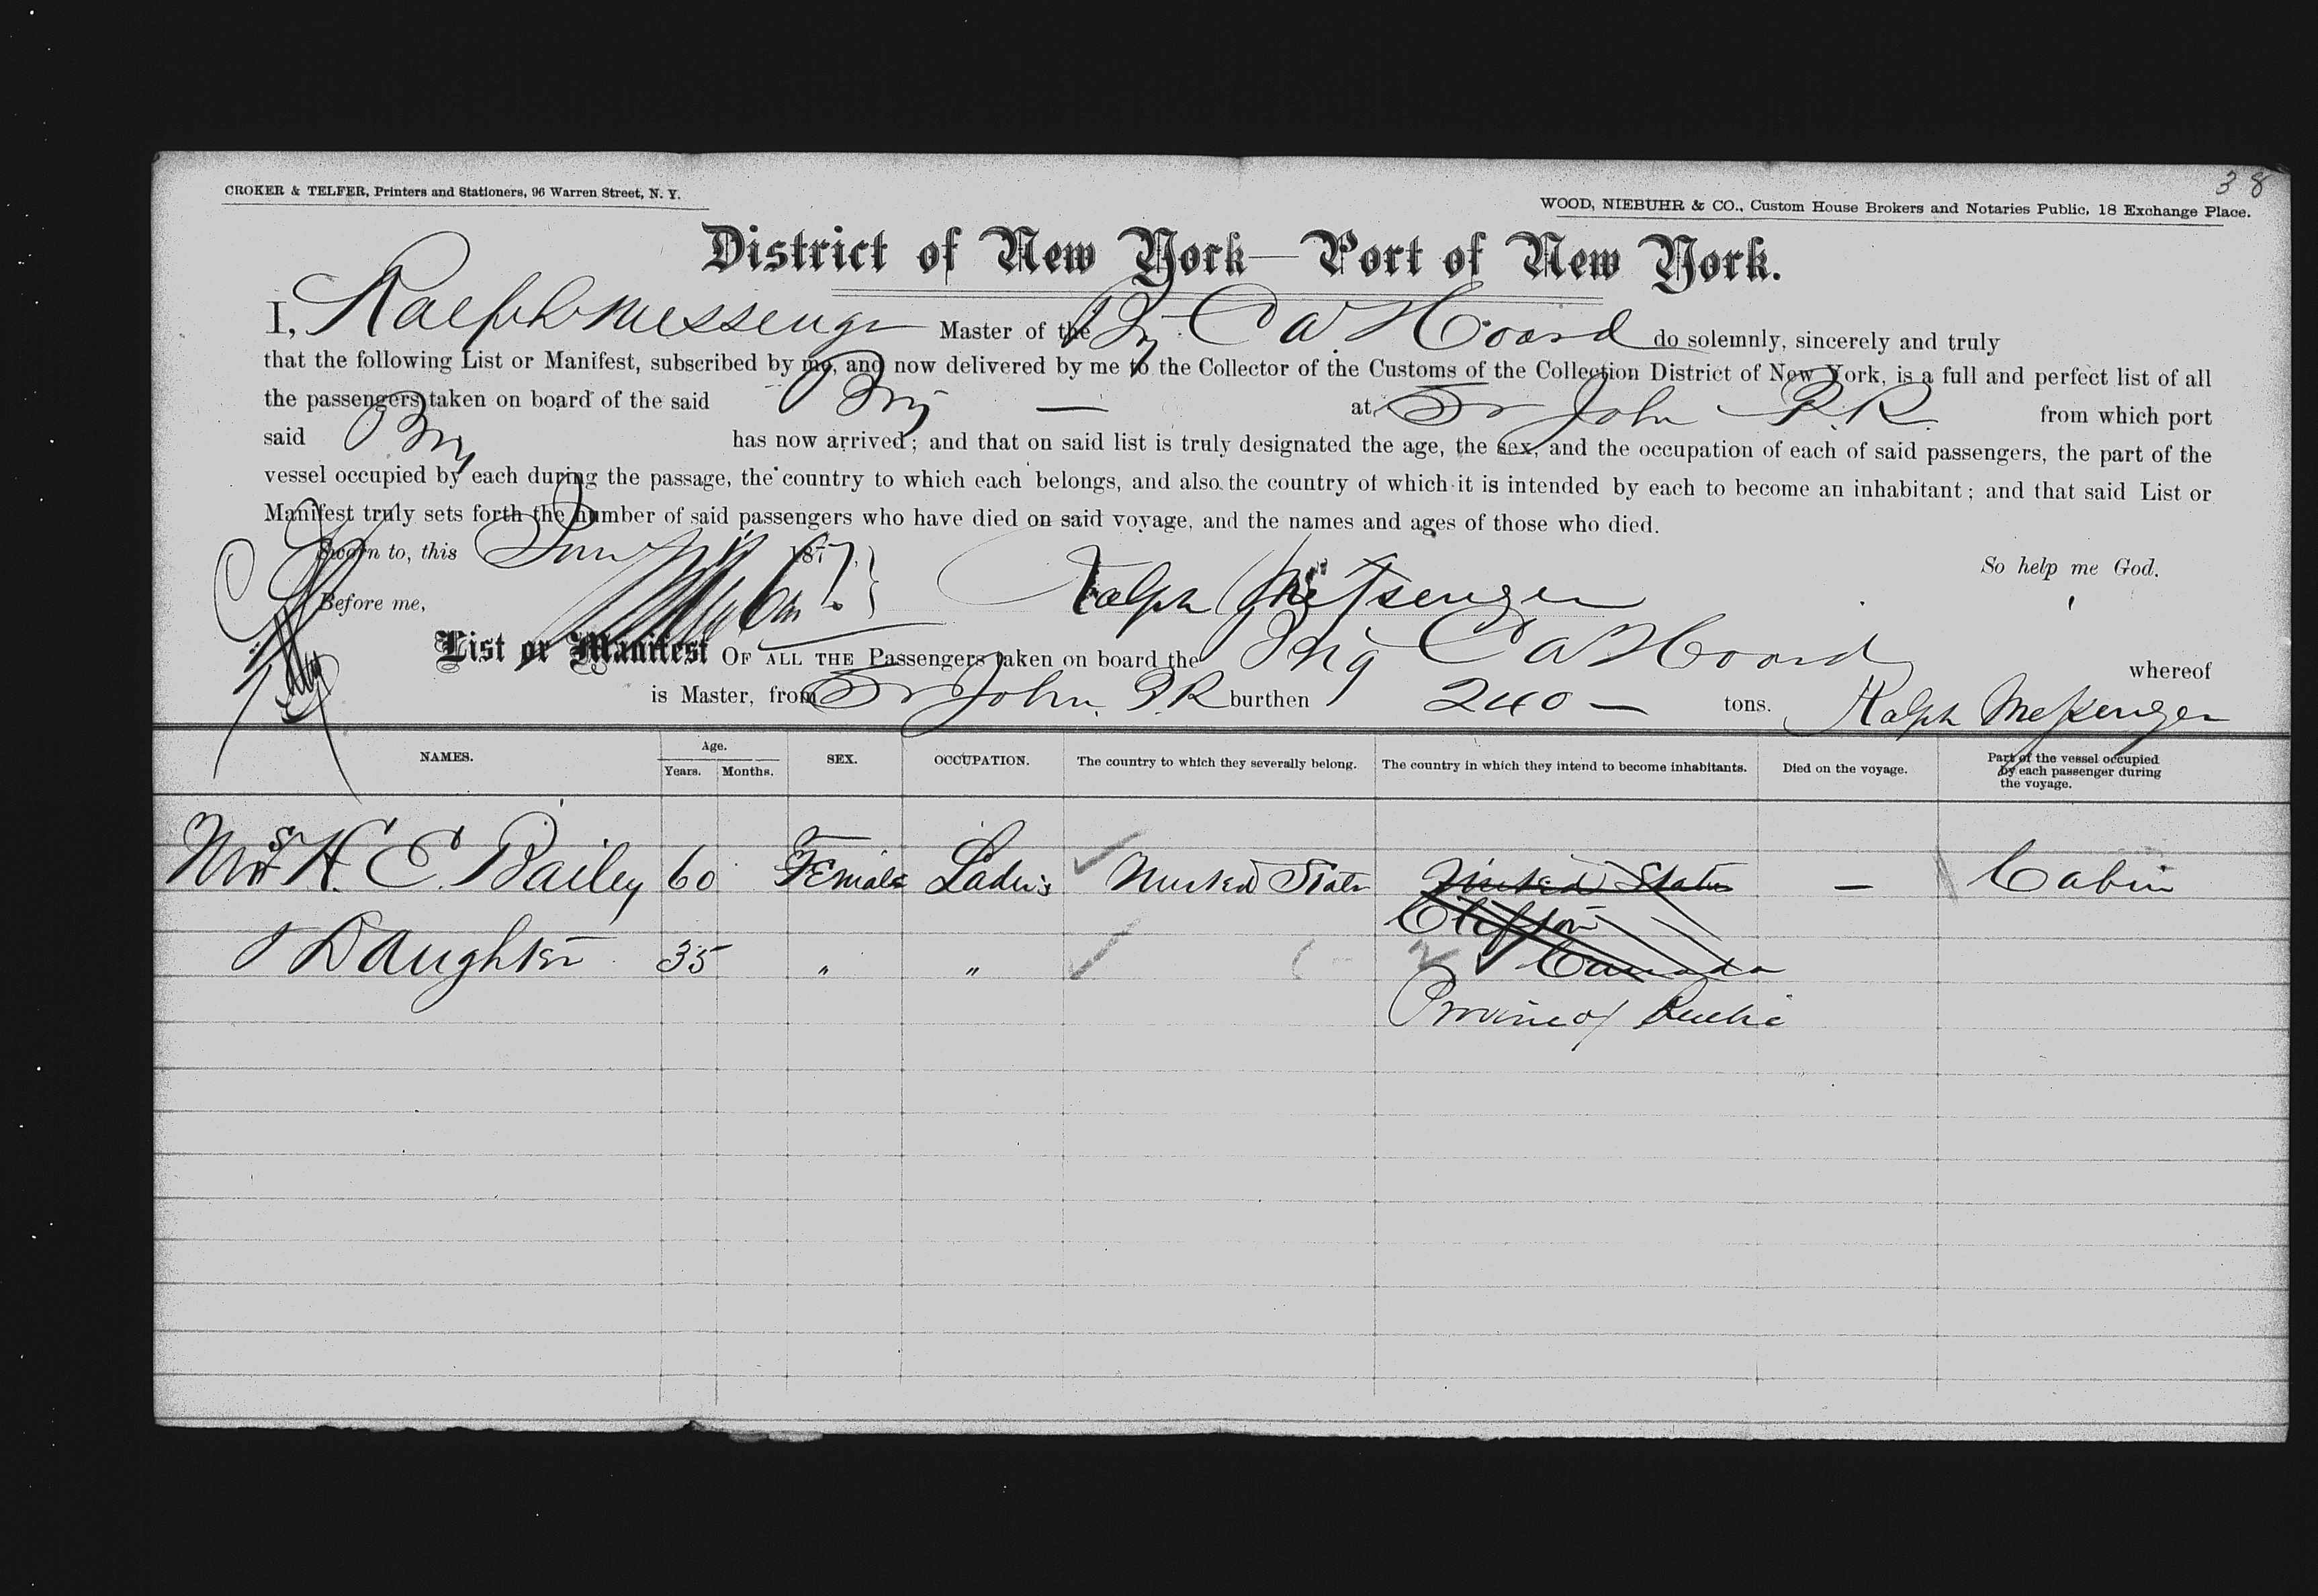 38
CROKER & TELFER, Printers and Stationers, 96 Warren Street, N. Y.
WOOD, NIEBUHR & CO., Custom House Brokers and Notaries Public, 18 Exchange Place.
District of New York—Port of New York.
I, Ralph Messenger Master of the Brig C A Hoard do solemnly, sincerely and truly
that the following List or Manifest, subscribed by me, and now delivered by me to the Collector of the Customs of the Collection District of New York, is a full and perfect list of all
the passengers taken on board of the said Brig — at St John P.R. from which port
said Brig has now arrived; and that on said list is truly designated the age, the sex, and the occupation of each of said passengers, the part of the
vessel occupied by each during the passage, the country to which each belongs, and also the country of which it is intended by each to become an inhabitant; and that said List or
Manifest truly sets forth the number of said passengers who have died on said voyage, and the names and ages of those who died.
Sworn to, this 187 So help me God.
Before me, Ralph Messenger
List or Manifest OF ALL THE Passengers taken on board the Brig C A Hoard whereof
is Master, from St John. P.R burthen 240 — tons. Ralph Messenger
NAMES. Age. Years. Months. SEX. OCCUPATION. The country to which they severally belong. The country in which they intend to become inhabitants. Died on the voyage. Part of the vessel occupied by each passenger during the voyage.
Mrs H. E. Bailey 60 Female Ladies United States United States — Cabin
Clifton
& Daughter 35 " " Canada
Province of Quebec